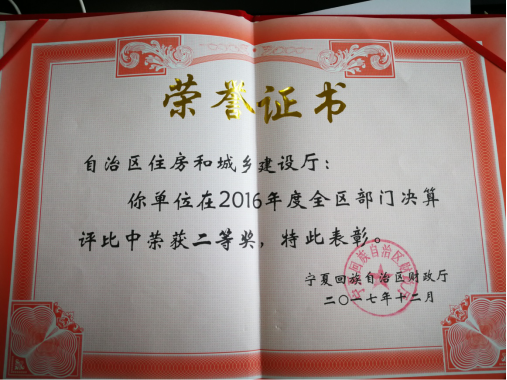 荣誉证书
自治区住房和城乡建设厅：
你单位在2016年度全区部门决算
评比中荣获二等奖，特此表彰。
宁夏回族自治区财政厅
二〇一七年十二月